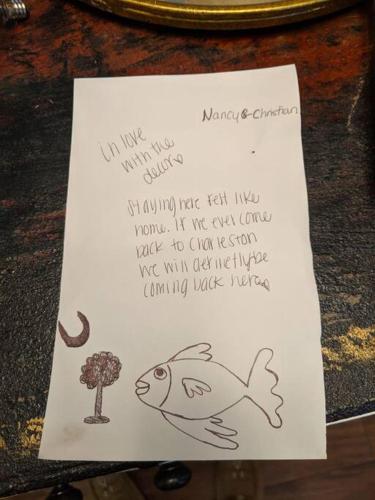 Nancy & Christian
in love
with the
decor
Staying here felt like
home. If we ever come
back to Charleston
we will definetly be
coming back here